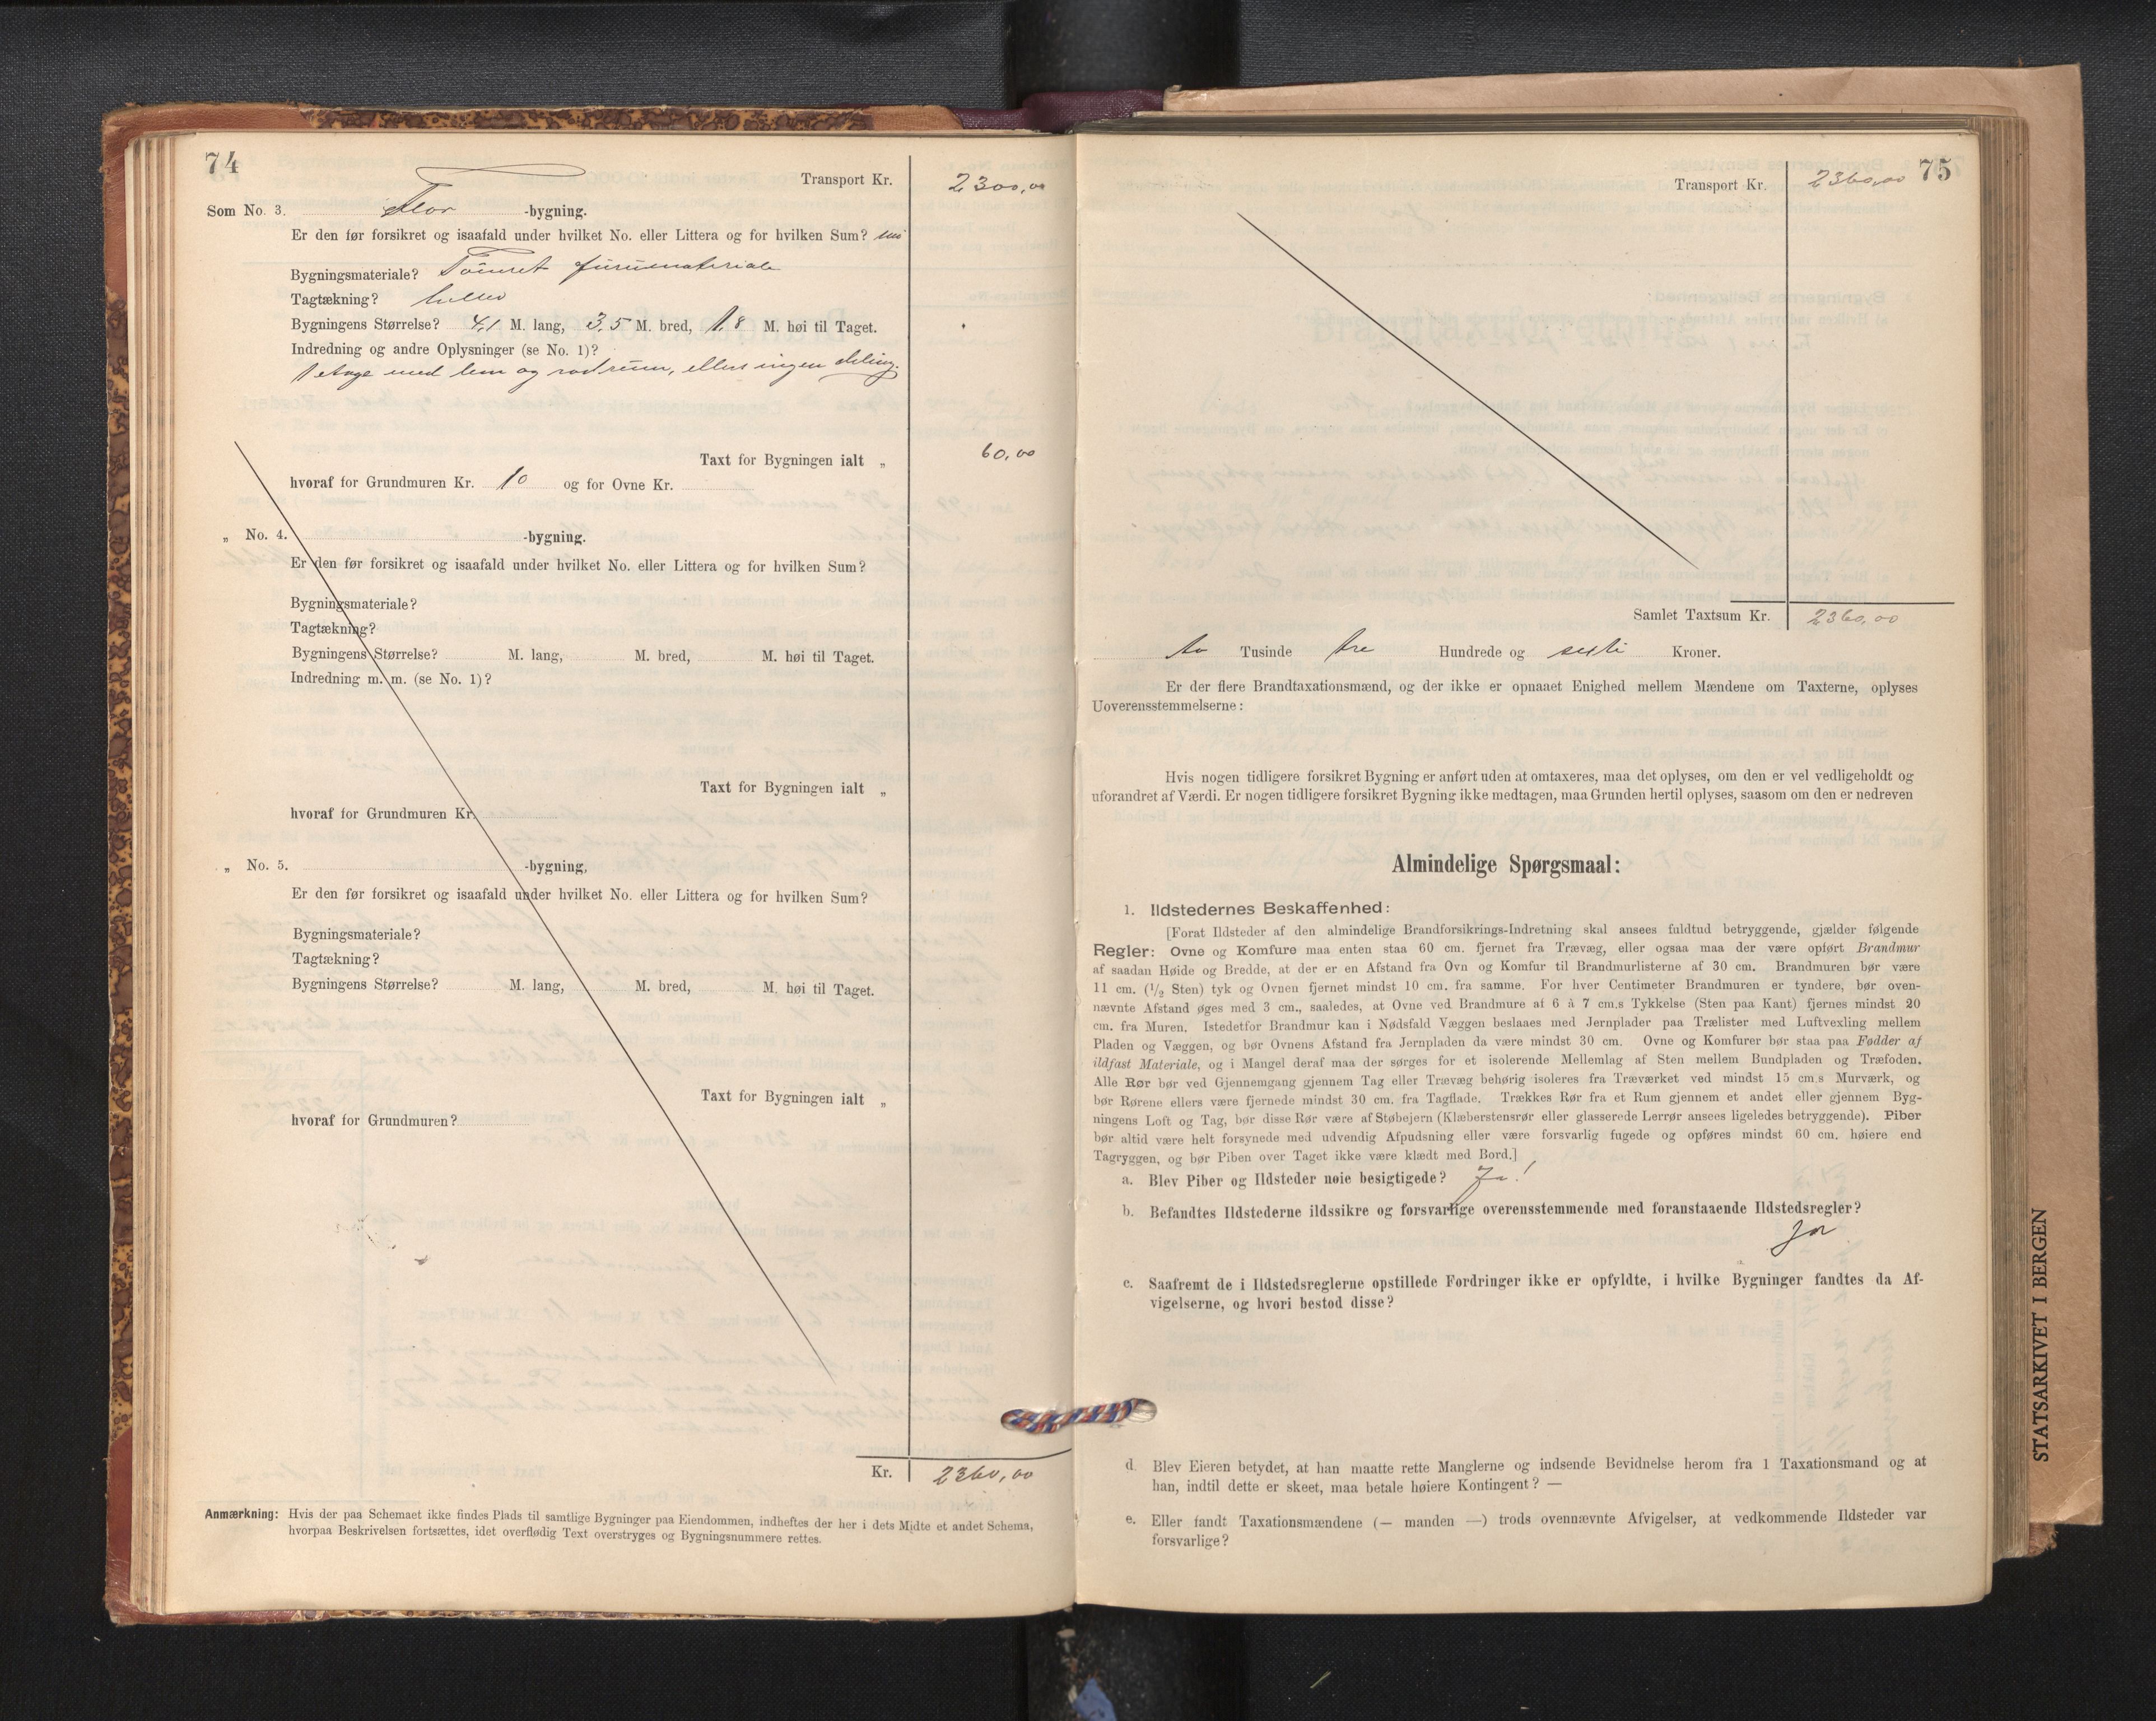 74
Transport Kr. 2300,00
Som No. 3. Flor -bygning.
Er den før forsikret og isaafald under hvilket No. eller Littera og for hvilken Sum? nei
Bygningsmateriale? Tømret furumateriale
Tagtækning?
Bygningens Størrelse? 4,1 M. lang, 3,5 M. bred, 1,8 M. høi til Taget.
Indredning og andre Oplysninger (se No. 1)?
1 etage med lem og rodrum, ellers ingen deling.
Taxt for Bygningen ialt „ 60,00
hvoraf for Grundmuren Kr. 10 og for Ovne Kr.
„ No. 4. -bygning.
Er den før forsikret og isaafald under hvilket No. eller Littera og for hvilken Sum?
Bygningsmateriale?
Tagtækning?
Bygningens Størrelse? M. lang, M. bred, M. høi til Taget.
Indredning m. m. (se No. 1)?
Taxt for Bygningen ialt „
hvoraf for Grundmuren Kr.
„ No. 5. -bygning,
Er den før forsikret og isaafald under hvilket No. eller Littera og for hvilken Sum?
Bygningsmateriale?
Tagtækning?
Bygningens Størrelse? M. lang, M. bred, M. høi til Taget.
Taxt for Bygningen ialt „
hvoraf for Grundmuren?
Kr. 2360,00
Anmærkning: Hvis der paa Schemaet ikke findes Plads til samtlige Bygninger paa Eiendommen, indheftes der her i dets Midte et andet Schema,
hvorpaa Beskrivelsen fortsættes, idet overflødig Text overstryges og Bygningsnummere rettes.
75
Transport Kr. 2360,00
Samlet Taxtsum Kr. 2360,00
to Tusinde tre Hundrede og sexti Kroner.
Er der flere Brandtaxationsmænd, og der ikke er opnaaet Enighed mellem Mændene om Taxterne, oplyses
Uoverensstemmelserne:
Hvis nogen tidligere forsikret Bygning er anført uden at omtaxeres, maa det oplyses, om den er vel vedligeholdt og
uforandret af Værdi. Er nogen tidligere forsikret Bygning ikke medtagen, maa Grunden hertil oplyses, saasom om den er nedreven
Almindelige Spørgsmaal:
1. Ildstedernes Beskaffenhed:
[Forat Ildsteder af den almindelige Brandforsikrings-Indretning skal ansees fuldtud betryggende, gjælder følgende
Regler: Ovne og Komfure maa enten staa 60 cm. fjernet fra Trævæg, eller ogsaa maa der være opført Brandmur
af saadan Høide og Bredde, at der er en Afstand fra Ovn og Komfur til Brandmurlisterne af 30 cm. Brandmuren bør være
11 cm. (1/2 Sten) tyk og Ovnen fjernet mindst 10 cm. fra samme. For hver Centimeter Brandmuren er tyndere, bør oven-
nævnte Afstand øges med 3 cm., saaledes, at Ovne ved Brandmure af 6 à 7 cm.s Tykkelse (Sten paa Kant) fjernes mindst 20
cm. fra Muren. Istedetfor Brandmur kan i Nødsfald Væggen beslaaes med Jernplader paa Trælister med Luftvexling mellem
Pladen og Væggen, og bør Ovnens Afstand fra Jernpladen da være mindst 30 cm. Ovne og Komfurer bør staa paa Fødder af
ildfast Materiale, og i Mangel deraf maa der sørges for et isolerende Mellemlag af Sten mellem Bundpladen og Træfoden.
Alle Rør bør ved Gjennemgang gjennem Tag eller Trævæg behørig isoleres fra Træværket ved mindst 15 cm.s Murværk, og
bør Rørene ellers være fjernede mindst 30 cm. fra Tagflade. Trækkes Rør fra et Rum gjennem et andet eller gjennem Byg-
ningens Loft og Tag, bør disse Rør være af Støbejern (Klæberstensrør eller glasserede Lerrør ansees ligeledes betryggende). Piber
bør altid være helt forsynede med udvendig Afpudsning eller være forsvarlig fugede og opføres mindst 60 cm. høiere end
Tagryggen, og bør Piben over Taget ikke være klædt med Bord.]
a. Blev Piber og Ildsteder nøie besigtigede? Ja!
b. Befandtes Ildstederne ildssikre og forsvarlige overensstemmende med foranstaaende Ildstedsregler?
Ja
c. Saafremt de i Ildstedsreglerne opstillede Fordringer ikke er opfyldte, i hvilke Bygninger fandtes da Af-
vigelserne, og hvori bestod disse?
d. Blev Eieren betydet, at han maatte rette Manglerne og indsende Bevidnelse herom fra 1 Taxationsmand og at
han, indtil dette er skeet, maa betale høiere Kontingent? —
e. Eller fandt Taxationsmændene (— manden —) trods ovennævnte Afvigelser, at vedkommende Ildsteder var
forsvarlige?
STATSARKIVET I BERGEN